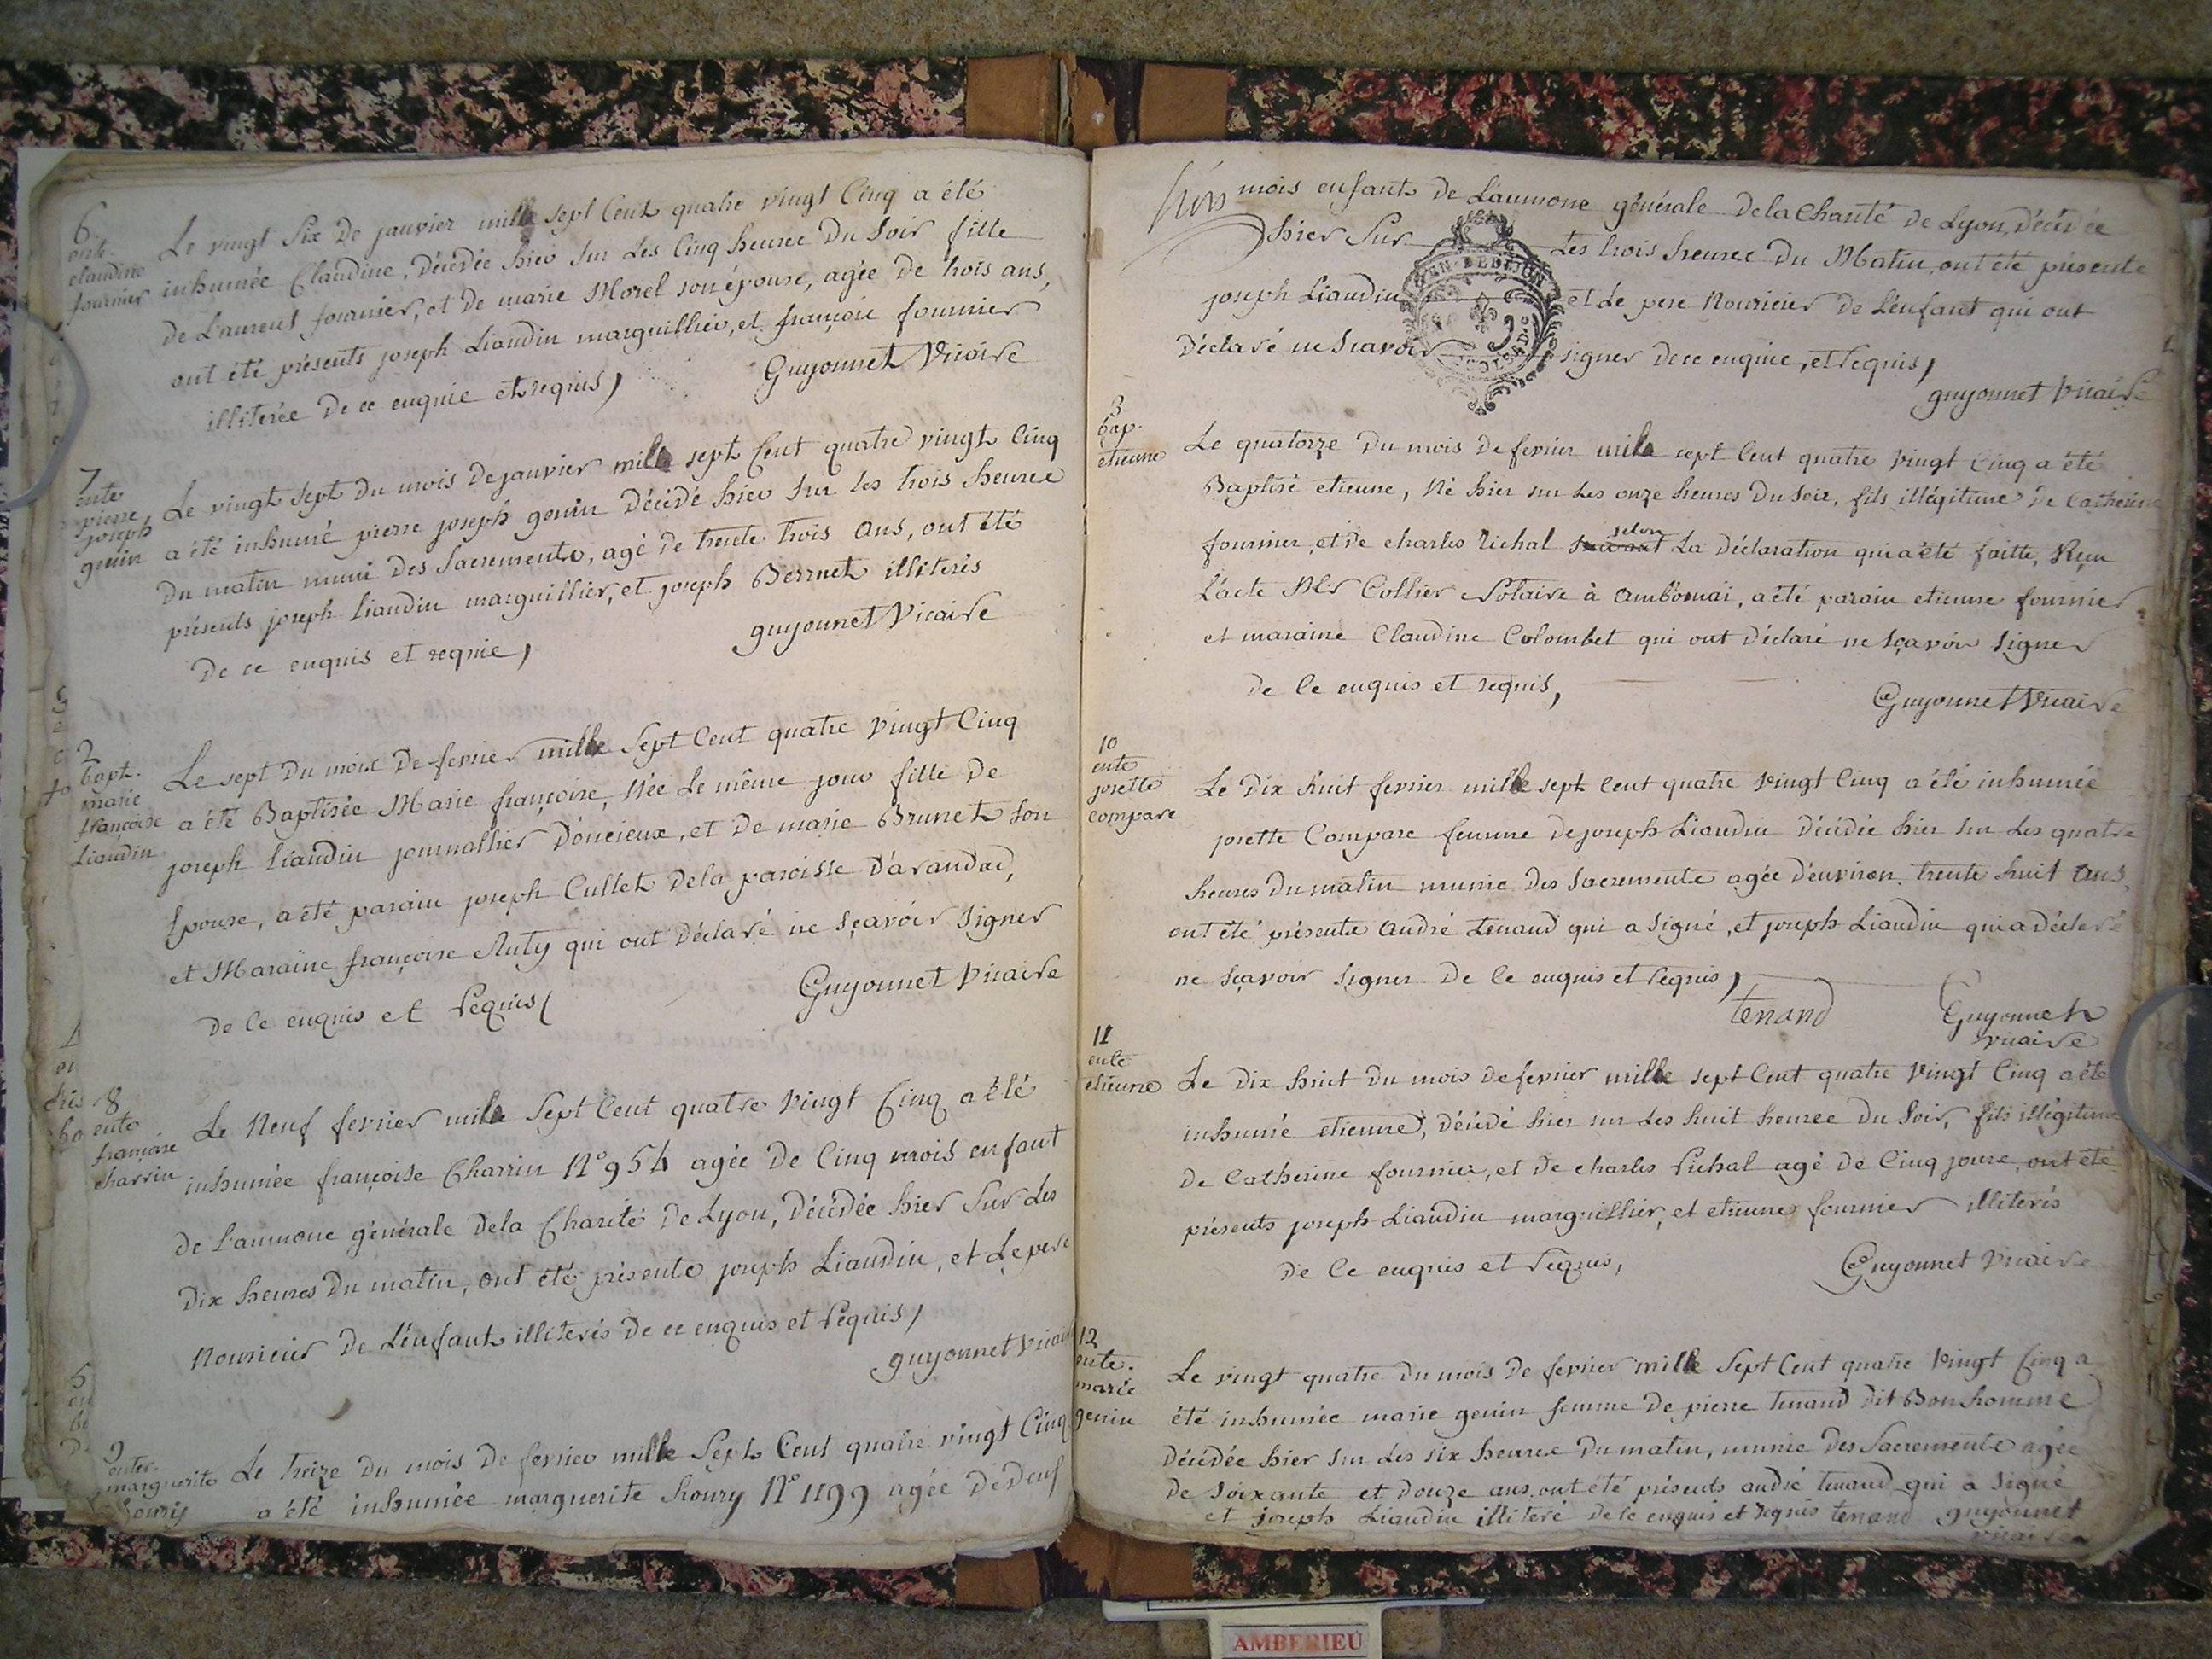 6
ent.
claudine
fournier
Le vingt Six De janvier mille sept Cent quatre vingt Cinq a été
inhumée Claudine, Décédée hier sur Les Cinq heures Du Soir fille
de Laurent fournier, et De marie Morel son épouse, agée De trois ans,
ont été présents joseph Liaudin marguillier, et françois fournier
illiterés De ce enquis et requis,
Guyonnet Vicaire
7
ente
pierre
joseph
genin
Le vingt sept Du mois De janvier mille sept Cent quatre vingt Cinq
a été inhumé pierre joseph genin Décédé hier sur les trois heures
Du matin muni Des Sacrements, agé de trente trois ans, ont été
présents joseph Liaudin marguillier, et joseph Berrnet illiterés
De ce enquis et requis,
guyonnet Vicaire
2
bapt.
marie
françoise
Liaudin
Le sept Du mois De fevrier mille Sept Cent quatre vingt Cinq
a été Baptisée Marie françoise, Née Le même jour fille De
joseph Liaudin journallier D'oncieux, et De marie Brunet son
Epouse, a été parain joseph Cullet Dela paroisse D'arandas,
et Maraine françoise Auty qui ont Déclaré ne sçavoir Signer
De Ce enquis et Requis,
Guyonnet Vicaire
8
ente
françoise
charrin
Le Neuf fevrier mille Sept Cent quatre vingt Cinq a été
inhumée françoise Charrin N° 954 agée De Cinq mois enfant
De L'aumone générale Dela Charité De Lyon, Décédée hier Sur Les
Dix heures Du matin, ont été présents joseph Liaudin, et Le pere
Nouricier De L'enfant illiterés De ce enquis et Requis,
guyonnet vicaire
9
enter.
marguerite
houry
Le treize Du mois De fevrier mille Sept Cent quatre vingt Cinq
a été inhumée marguerite houry N° 1199 agée De Deux
mois enfant De L'aumone générale Dela Charité de Lyon, Décédée
hier Sur Les trois heures Du Matin, ont été présents
joseph Liaudin et Le pere Nouricier De L'enfant qui ont
Déclaré ne Scavoir signer De ce enquis, et Requis,
guyonnet Vicaire
3
bap.
etienne
Le quatorze Du mois De fevrier mille sept Cent quatre vingt Cinq a été
Baptisé etienne, Né hier sur Les onze heures Du Soir, fils illégitime De Catherine
selon
fournier, et De charles Richal suivant La Déclaration qui a été faitte, Reçu
L'acte Mr Collier Notaire à Ambournai, a été parain etienne fournier
et maraine Claudine Colombet qui ont Déclaré ne Sçavoir Signer
De Ce enquis et requis,
Guyonnet Vicaire
10
ente
josette
compare
Le Dix huit fevrier mille sept Cent quatre vingt Cinq a été inhumée
josette Compare femme De joseph Liaudin Décédée hier sur Les quatre
heures Du matin munie Des Sacrements agée D'environ trente huit ans,
ont été présents andré tenand qui a Signé, et joseph Liaudin qui a Déclaré
ne sçavoir Signer De Ce enquis et Requis,
tenand
Guyonnet
vicaire
11
ente
etienne
Le Dix huit Du mois De fevrier mille sept Cent quatre Vingt Cinq a été
inhumé etienne, Décédé hier sur Les huit heures Du Soir, fils illégitime
De Catherine fournier, et De charles Richal agé De Cinq jours, ont été
présents joseph Liaudin marguillier, et etienne fournier illiterés
De Ce enquis et Requis,
Guyonnet Vicaire
12
ente.
marie
genin
Le vingt quatre Du mois De fevrier mille Sept Cent quatre Vingt Cinq a
été inhumée marie genin femme De pierre tenand Dit Bon homme
Décédée hier sur Les six heures Du matin, munie Des Sacrements agée
De Soixante et Douze ans, ont été présents andré tenand qui a Signé
et joseph Liaudin illiteré De Ce enquis et requis tenand guyonnet
vicaire
AMBERIEU